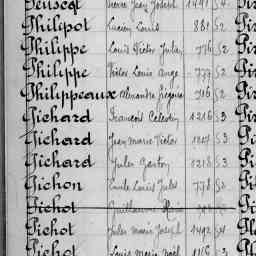 Joseph 1491 S4
Philipot Lucien Louis 881 S2
Philippe Louis Victor Julien 776 S2
Philippe Victor Louis Ange 777 S2
Philippeaux Alexandre 716 S2
Pichard François Célestin 1216 S3
Pichard Jean Marie Victor S3
Pichard Jules Gaston 1218 S3
Pichon Emile Louis Jules 778 S2
Pichot Guillaume
Pichot Jules Marie Joseph 1492 S4
Pichot Louis Marie Noël 3